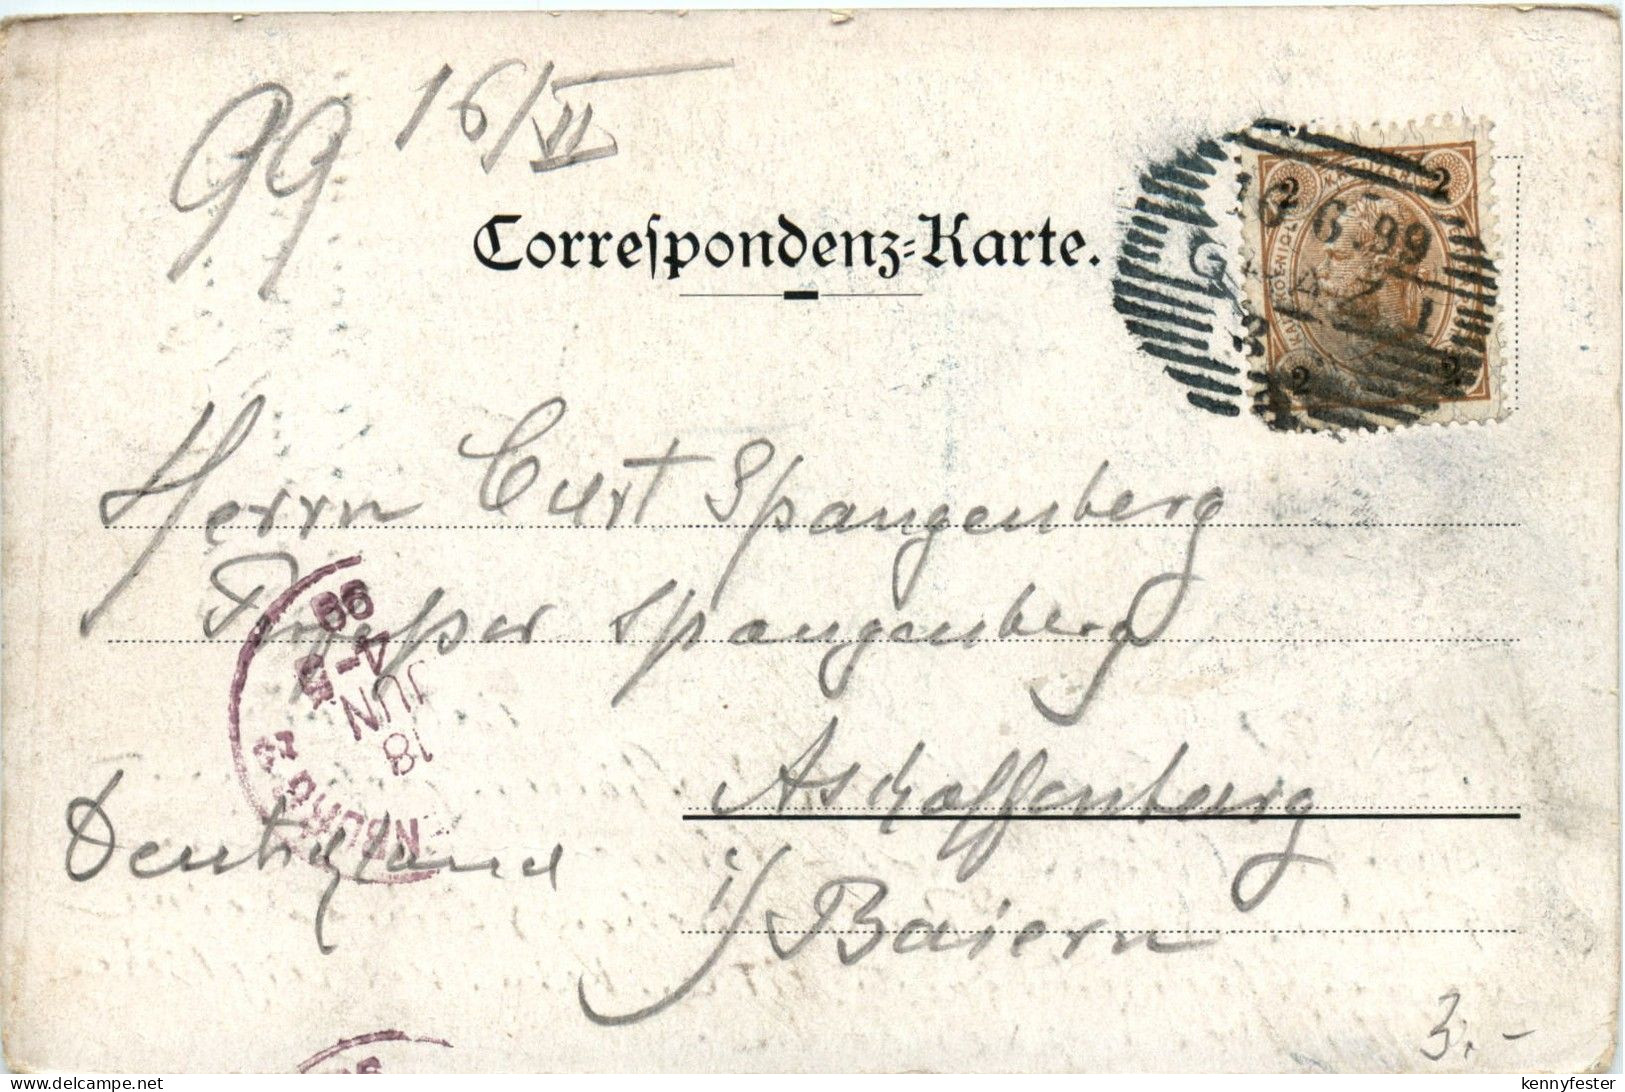 99 16/VI
Correspondenz-Karte.
2 2
6 6.99
2 2
Herrn Curt Spangenberg
Professor Spangenberg
99
4-5
JUN
18
Aschaffenburg
Deutschland
i/ Baiern
3.-
kennyfester